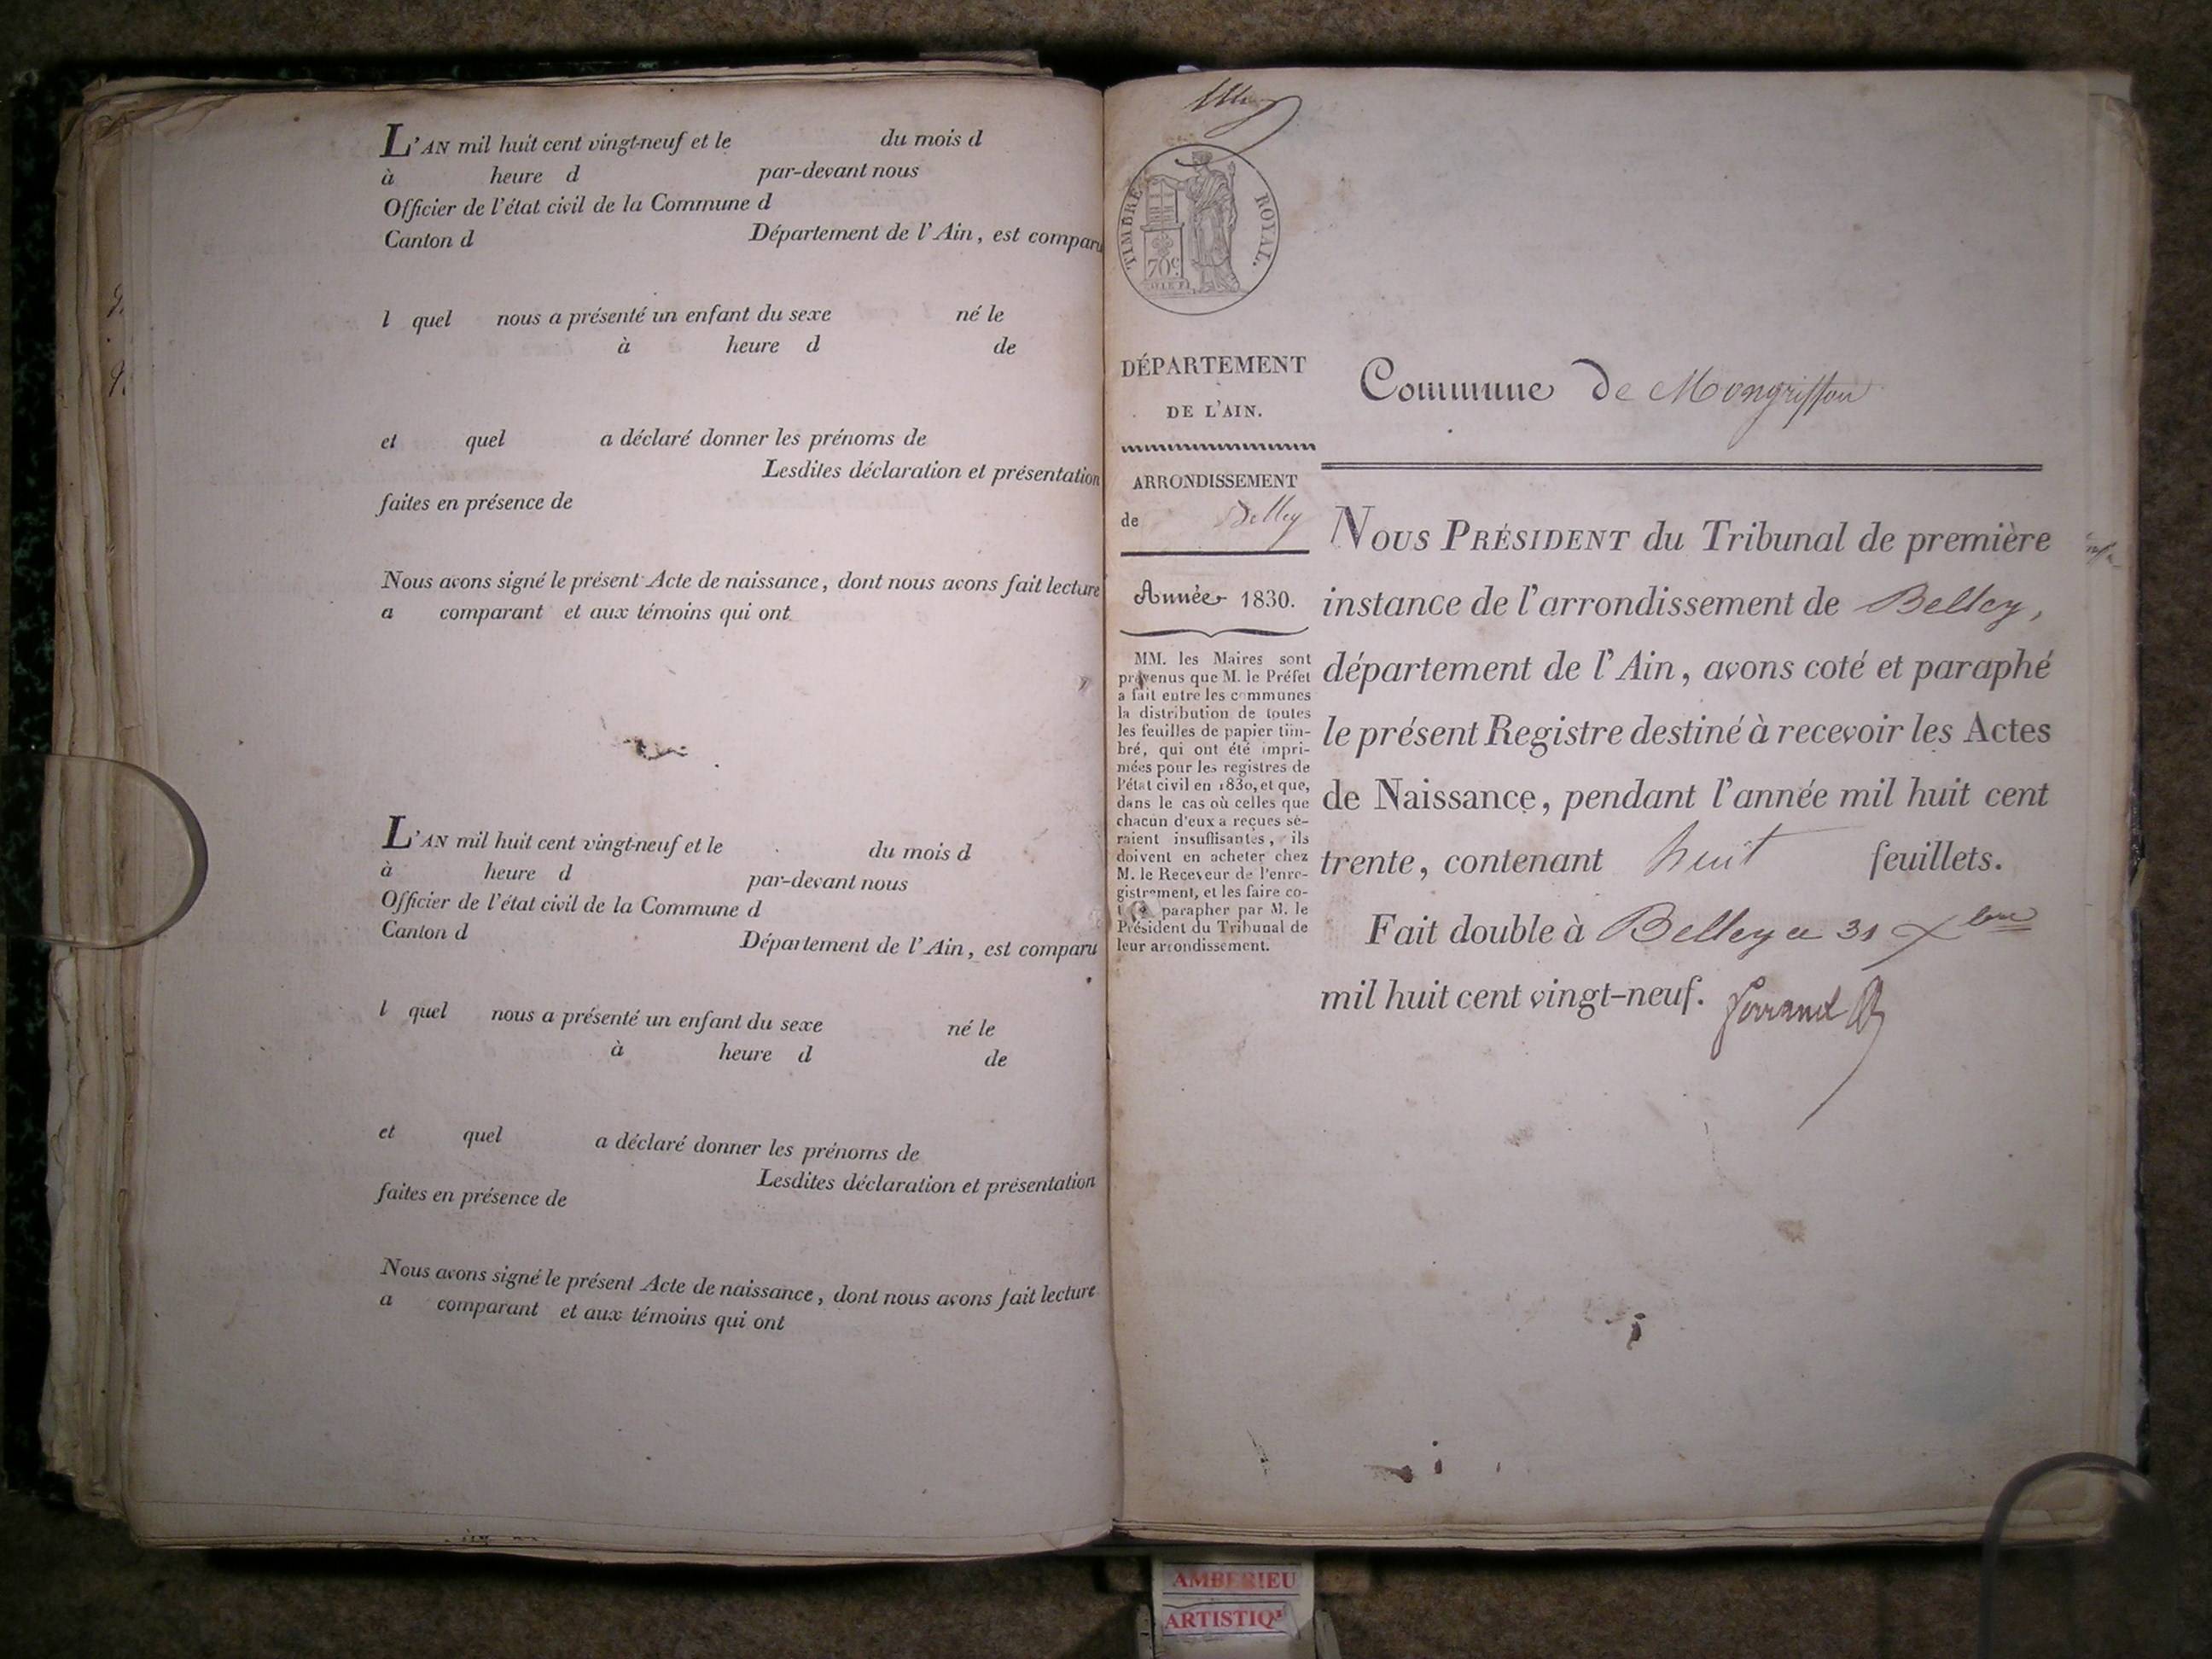 L'AN mil huit cent vingt-neuf et le du mois d
à heure d par-devant nous
Officier de l'état civil de la Commune d
Canton d Département de l'Ain, est comparu
l quel nous a présenté un enfant du sexe né le
à heure d de
et quel a déclaré donner les prénoms de
Lesdites déclaration et présentation
faites en présence de
Nous avons signé le présent Acte de naissance, dont nous avons fait lecture
a comparant et aux témoins qui ont
L'AN mil huit cent vingt-neuf et le du mois d
à heure d par-devant nous
Officier de l'état civil de la Commune d
Canton d Département de l'Ain, est comparu
l quel nous a présenté un enfant du sexe né le
à heure d de
et quel a déclaré donner les prénoms de
Lesdites déclaration et présentation
faites en présence de
Nous avons signé le présent Acte de naissance, dont nous avons fait lecture
a comparant et aux témoins qui ont
TIMBRE ROYAL.
70c
DÉPARTEMENT
DE L'AIN.
ARRONDISSEMENT
de Belley
Année 1830.
MM. les Maires sont
prévenus que M. le Préfet
a fait entre les communes
la distribution de toutes
les feuilles de papier tim-
bré, qui ont été impri-
mées pour les registres de
l'état civil en 1830, et que,
dans le cas où celles que
chacun d'eux a reçues se-
raient insuffisantes, ils
doivent en acheter chez
M. le Receveur de l'enre-
gistrement, et les faire co-
parapher par M. le
Président du Tribunal de
leur arrondissement.
Commune de Mongriffon
NOUS PRÉSIDENT du Tribunal de première
instance de l'arrondissement de Belley,
département de l'Ain, avons coté et paraphé
le présent Registre destiné à recevoir les Actes
de Naissance, pendant l'année mil huit cent
trente, contenant huit feuillets.
Fait double à Belley ce 31 Xbre
mil huit cent vingt-neuf.
AMBERIEU
ARTISTIQ